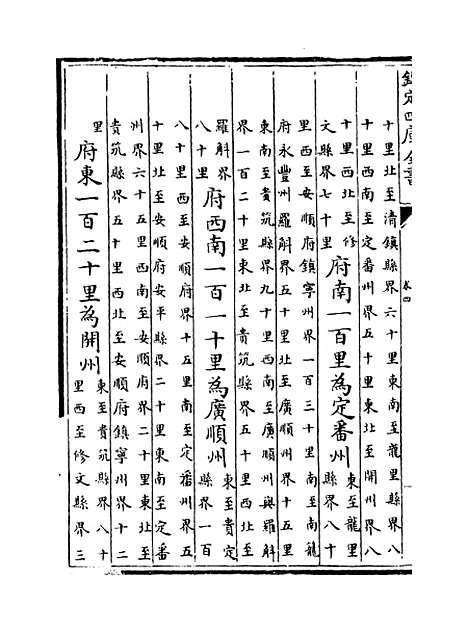 欽定四庫全書
卷四
十里北至清鎮縣界六十里東南至龍里縣界八
十里西南至定番州界五十里東北至開州界八
十里西北至修
文縣界七十里
府南一百里為定番州
東至龍里
縣界八十
里西至安順府鎮寧州界一百三十里南至南籠
府永豐州羅斛界五十里北至廣順州界十五里
東南至貴筑縣界九十里西南至廣順州與羅斛
界一百二十里東北至貴筑縣界五十里西北至
羅斛界
八十里
府西南一百一十里為廣順州
東至貴定
縣界一百
八十里西至安順府界十五里南至定番州界五
十里北至安順府安平縣界二十里東南至定番
州界六十五里西南至安順府界二十里東北至
貴筑縣界五十里西北至安順府鎮寧州界十二
里
府東一百二十里為開州
東至貴筑縣界八十
里西至修文縣界三